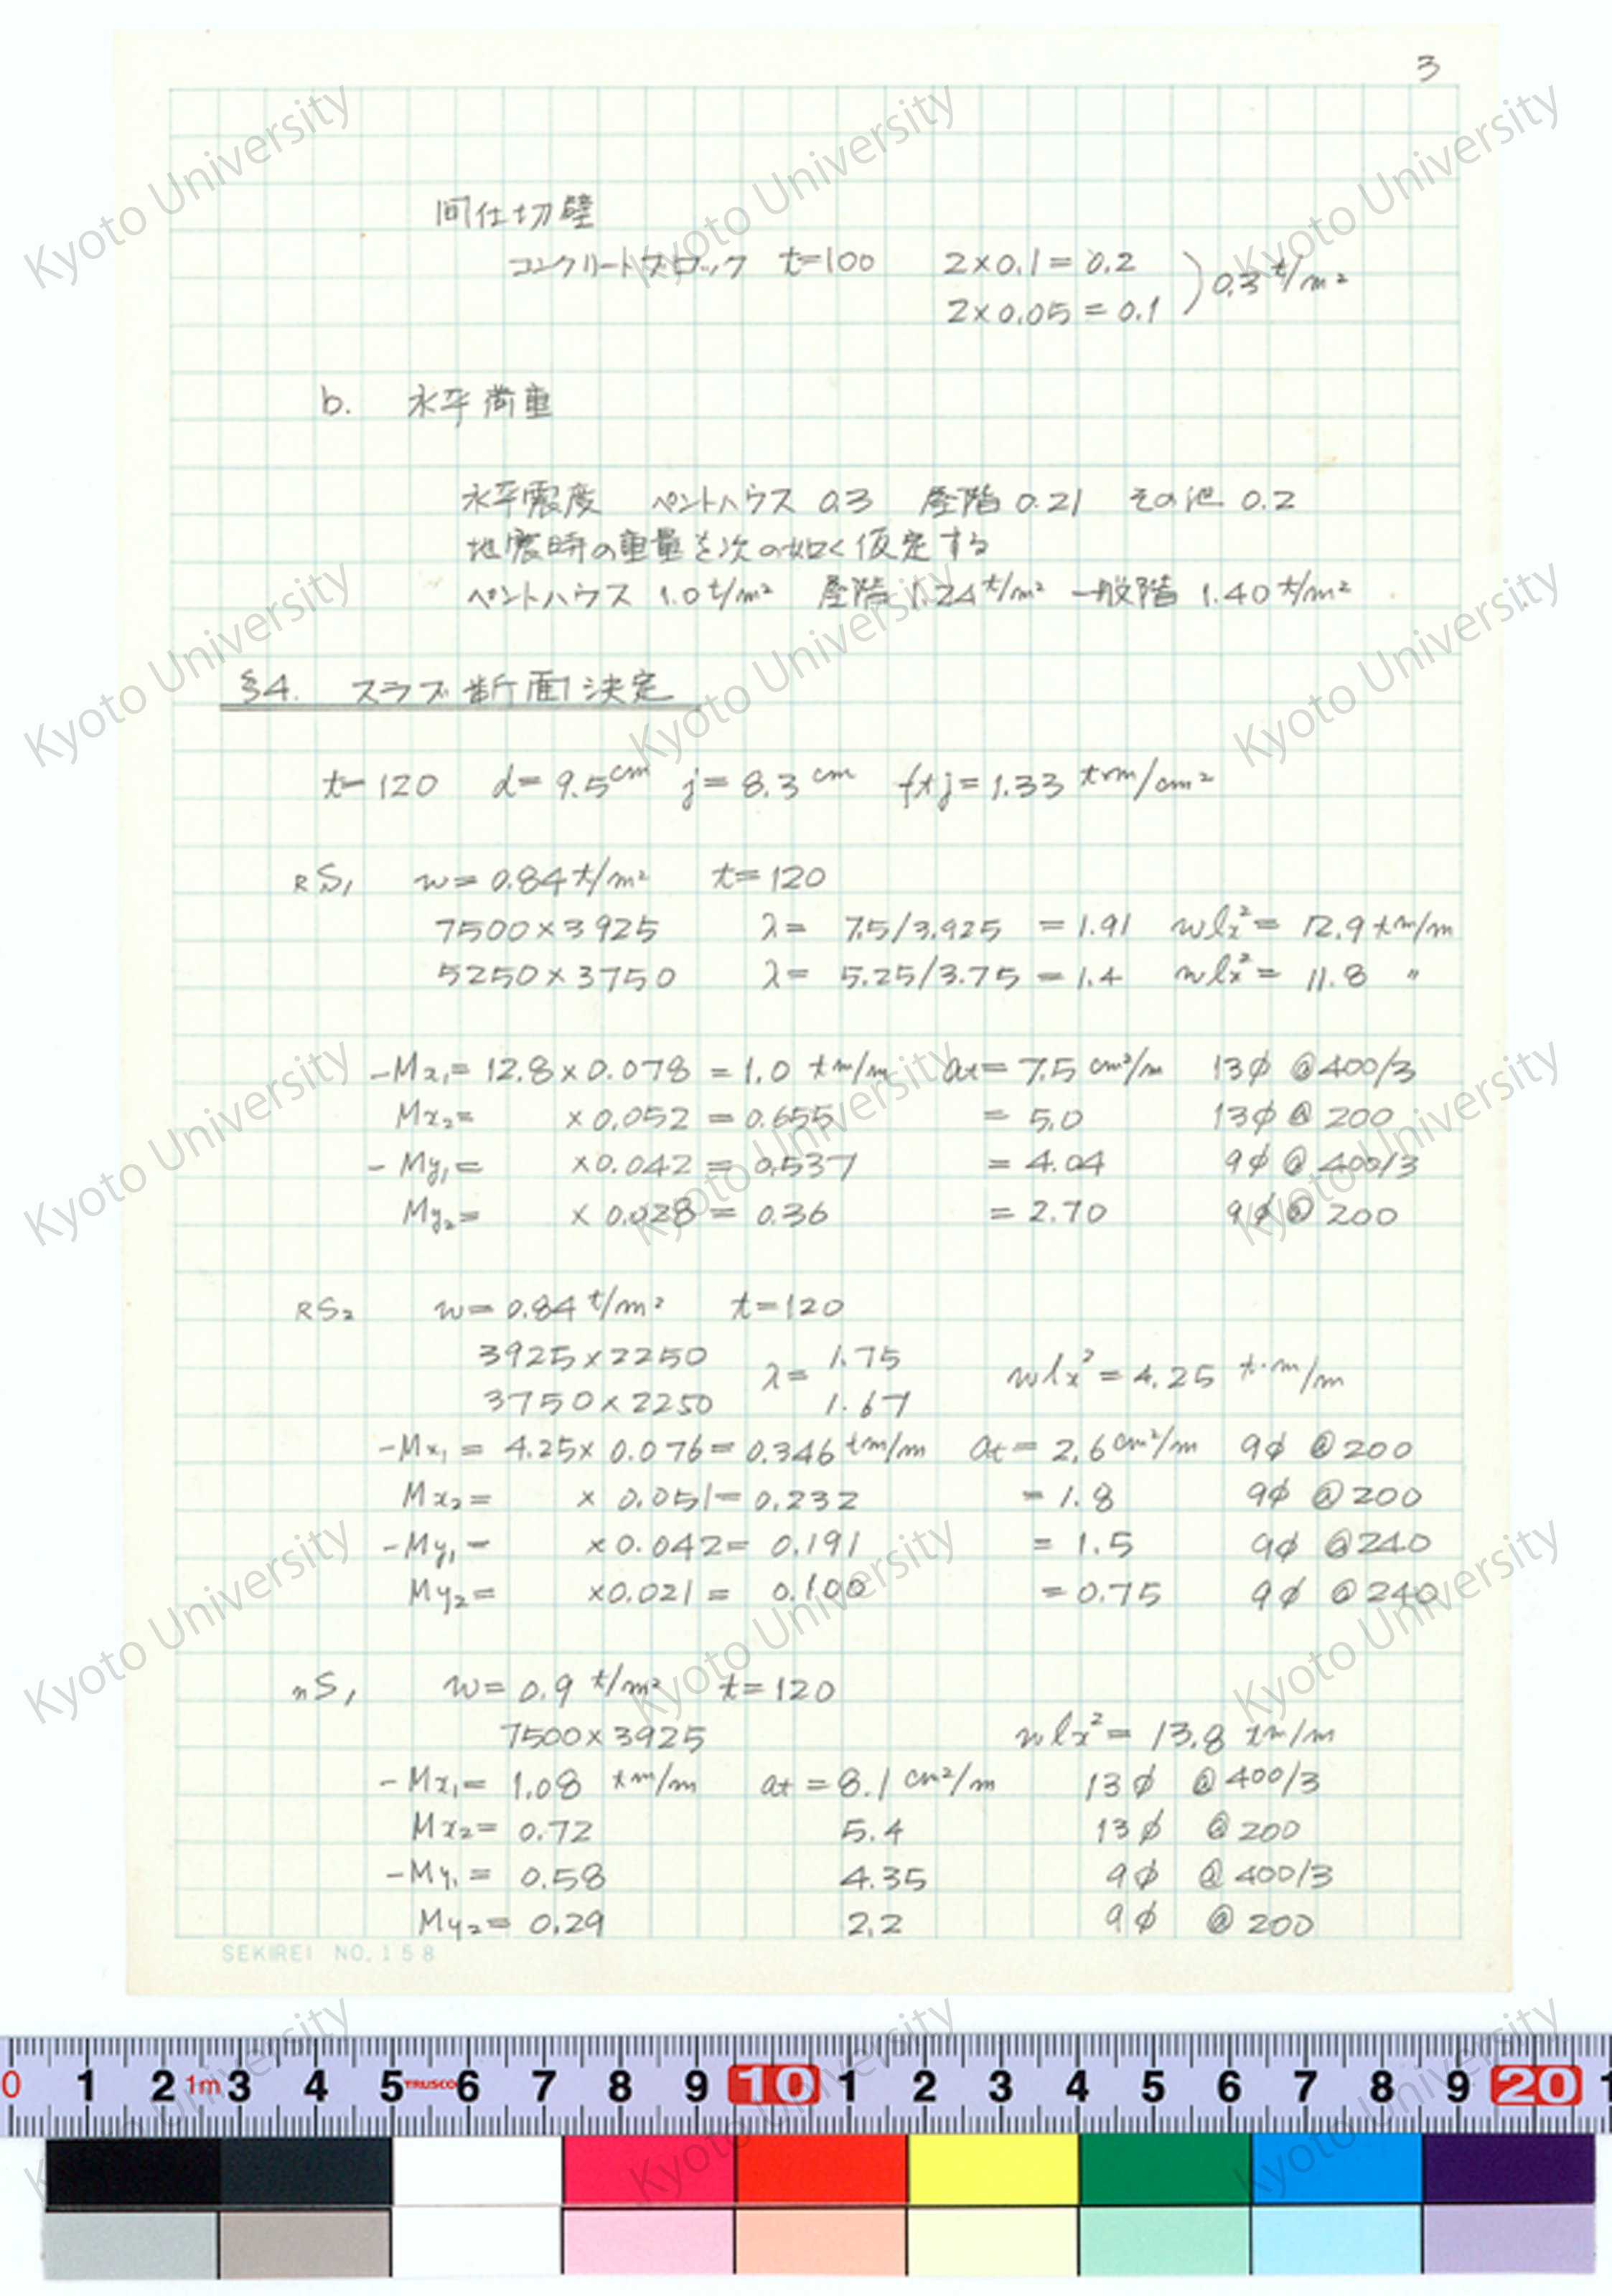 3
間仕切壁
コンクリートブロック t=100 2×0.1=0.2
2×0.05=0.1 ) 0.3 t/m²
b. 水平荷重
水平震度 ペントハウス 0.3 屋階 0.21 その他 0.2
地震時の重量を次の如く仮定する
ペントハウス 1.0 t/m² 屋階 1.24 t/m² 一般階 1.40 t/m²
§4. スラブ断面決定
t=120 d=9.5cm j=8.3cm ftj=1.33 t·m/cm²
RS₁ w=0.84 t/m² t=120
7500×3925 λ= 7.5/3.925 =1.91 wlx²= 12.9 tm/m
5250×3750 λ= 5.25/3.75 =1.4 wlx²= 11.8 〃
-Mx₁= 12.8×0.078 =1.0 tm/m at= 7.5 cm²/m 13φ @400/3
Mx₂= ×0.052 =0.655 = 5.0 13φ @200
-My₁= ×0.042 = 0.537 = 4.04 9φ @400/3
My₂= ×0.028 = 0.36 = 2.70 9φ @200
RS₂ w=0.84 t/m² t=120
3925×2250 λ= 1.75 wlx²=4.25 t·m/m
3750×2250 1.67
-Mx₁ = 4.25×0.076=0.346 tm/m at= 2.6 cm²/m 9φ @200
Mx₂= ×0.051=0.232 =1.8 9φ @200
-My₁= ×0.042= 0.191 = 1.5 9φ @240
My₂= ×0.021= 0.100 =0.75 9φ @240
nS₁ w=0.9 t/m² t=120
7500×3925 wlx²= 13.8 tm/m
-Mx₁= 1.08 tm/m at=8.1 cm²/m 13φ @400/3
Mx₂= 0.72 5.4 13φ @200
-My₁= 0.58 4.35 9φ @400/3
My₂= 0.29 2.2 9φ @200
SEKIREI NO.158
Kyoto University
0 1 2 1m 3 4 5 TRUSCO 6 7 8 9 10 1 2 3 4 5 6 7 8 9 20 1